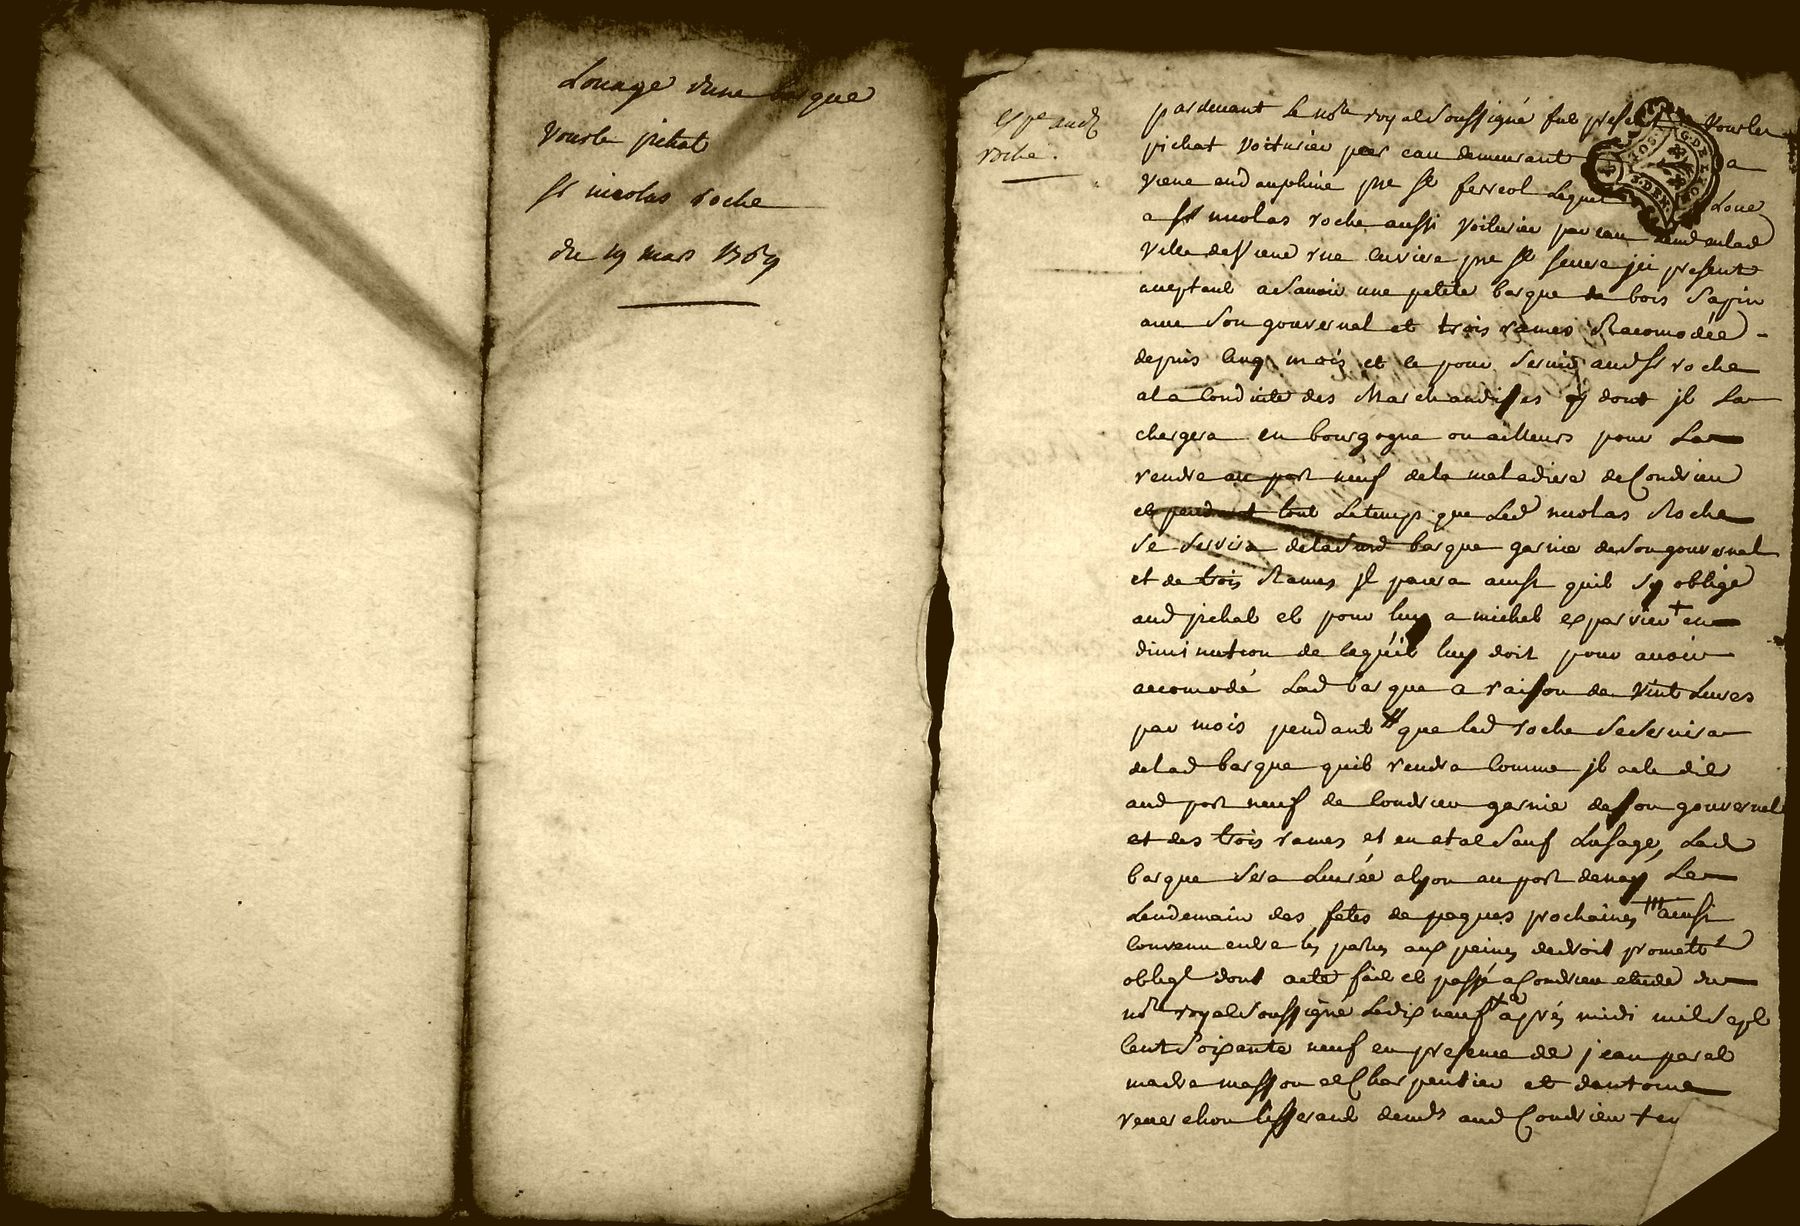 Louage dune barque
vourle pichat
sr nicolas roche
du 19 mars 1769
expe aud
roche.
pardevant le nore royal soussigné fut present vourle
pichat voiturier par eau demeurant a
viene en dauphine psse st ferreol lequel loue
a sr nicolas roche aussi voiturier par eau demt en lad
ville de viene rue cuviere psse st severe jci present
aceptant a savoir une petite barque de bois sapin
avec son gouvernal et trois rames Racomodée
depuis cinq mois et ce pour servir aud sr roche
a la conduite des Marchandises dont jl la
chargera en bourgogne ou ailleurs pour la
rendre au port neuf de la maladiere de Condrieu
et pendant tout le temps que led nicolas Roche
se servira de la susd barque garnie de son gouvernal
et de trois Rames jl paiera ainsi quil sy oblige
aud pichat et pour luy a michel exparvier + en
diminution de ce quil luy doit pour avoir
acomodé lad barque a raison de vint livres
par mois pendant # que led roche se servira
de lad barque quil rendra comme jl a ete dit
aud port neuf de Condrieu garnie de son gouvernal
et des trois rames et en etat sauf lusage, lad
barque sera livrée a lyon au port denay le
lendemain des fetes de paques prochaines ainsi
convenu entre les parties aux peines de droit promett
obligt dont acte fait et passé a Condrieu etude du
nore royal soussigné le dix neuf après midi mil sept
cent soixante neuf en presence de jean paret
maitre masson et Charpentier et dantoine
tisserand demts aud Condrieu + en